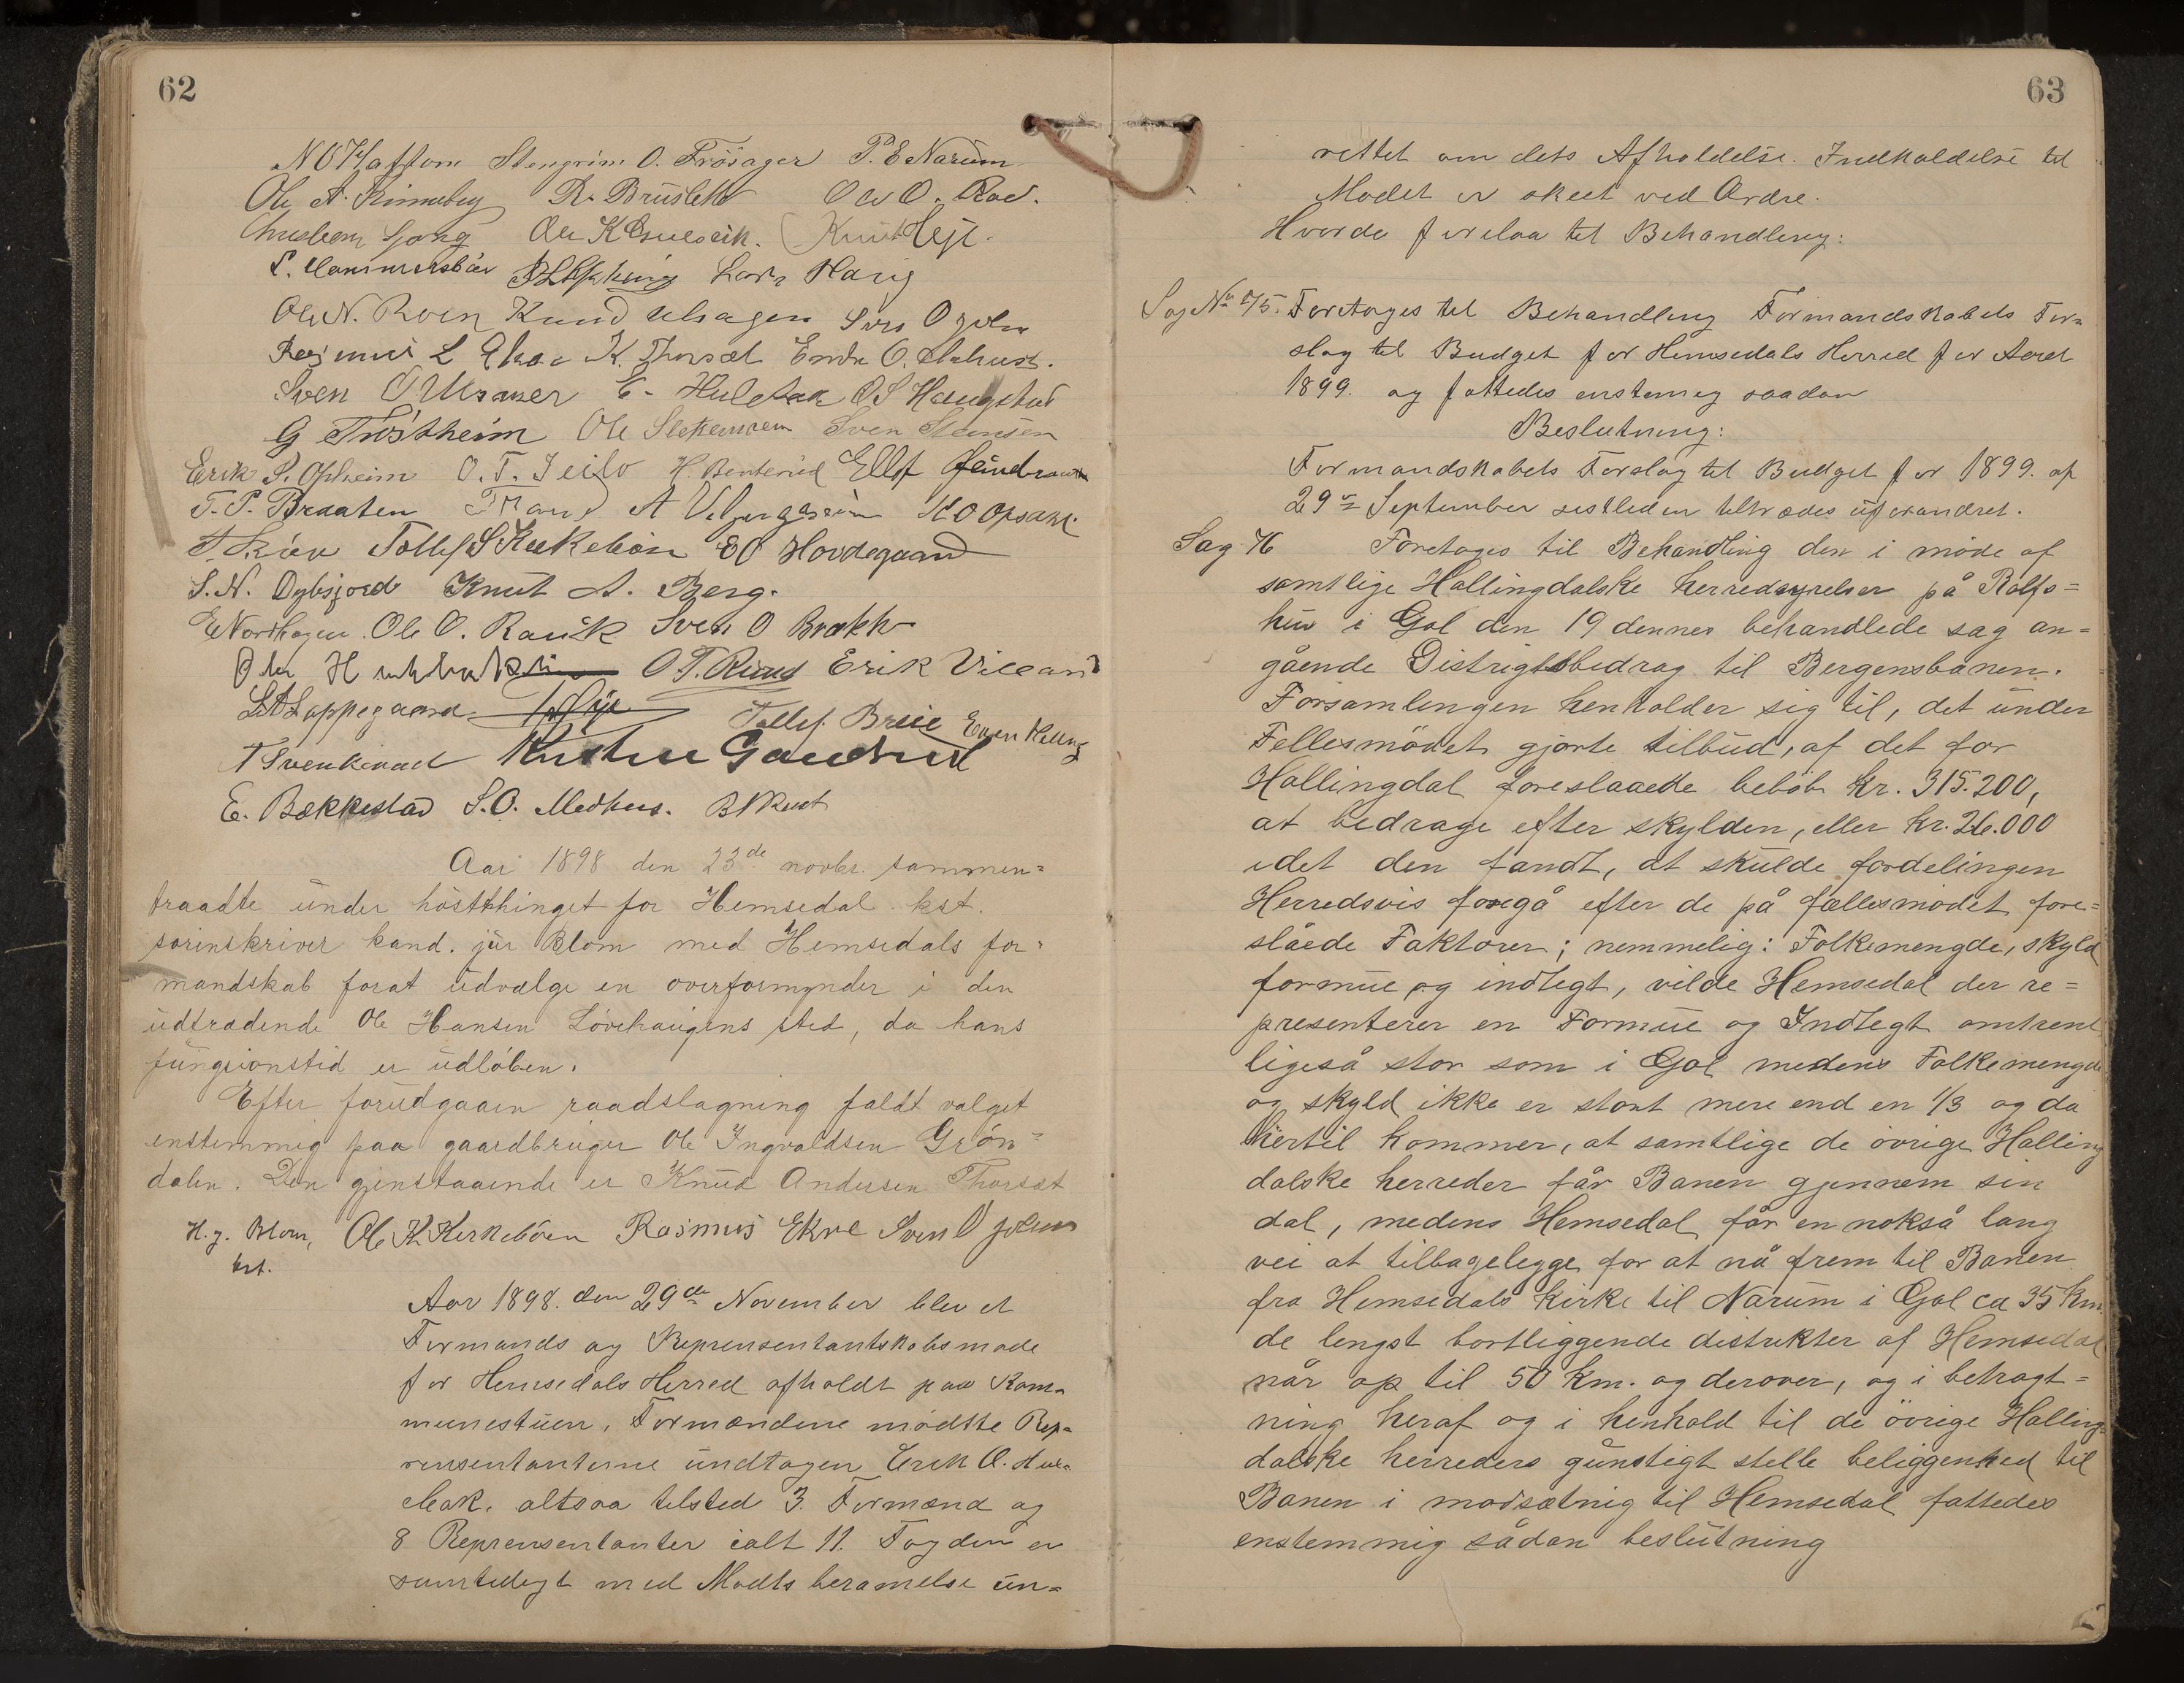 62
Stengrim O. Frösager P. E Narum
Ole A. Rinneberg R. Brusletto Ole O. Roe.
Ole K Knut
Lars Haug
Ole N. Roen Knud Sven O
Rasmus L Ekre K. Thorset Endre O.
Sven O Ulsaker E. Huletak O S Haugstad
G Trøstheim Ole Sven Steinsen
Erik S. Opheim O. T. Ellef
T. P. Braaten K O Opsahl
Tollef S Kirkebøen E O Hovdegaard
S. N. Dybsjord Knut A. Berg.
E Nordhagen Ole O. Rauk Sven O
O T. Ruud Erik Villand
L A Lappegaard Tollef Breie Even
T Svenkerud Kristen Gandrud
E. Bækkestad S. O. Medhus.
Aar 1898 den 23de novbr. sammen=
traadte under høstthinget for Hemsedal kst.
sorinskriver kand. jur Blom med Hemsedals for=
mandskab forat udvælge en overformynder i den
udtrædende Ole Hansen Løvehaugens sted, da hans
fungsionstid er udløben.
Efter forudgaaen raadslagning faldt valget
enstemmig paa gaardbruger Ole Ingvaldsen Grøn=
dalen. Den gjenstaaende er Knud Andersen Thorset
H. J. Blom, Ole K. Kirkebøen Rasmus Ekre Sven O
kst.
Aar 1898. den 29de November blev et
Formands og Reprensentantskabsmøde
for Hemsedals Herred afholdt paa Kom=
munestuen. Formændene mødtte Rep=
rensentanterne undtagen Erik O. Hul=
ebak. altsaa tilsted 3. Formænd og
8 Reprensentanter ialt 11. Fogden er
samtidigt med Mødts beramelse un=
63
rettet om dets Afholdelse. Indkaldelse til
Mødet er skeet ved Ordre.
Hvorda forelaa til Behandling:
Sag No 75. Foretages til Behandling Formandskabets For=
slag til Budget for Hemsedals Herred for Aaret
1899. og fattedes enstemig saadan
Beslutning:
Formandskabets Forslag til Budget for 1899. af
29de September sistleden tiltrædes uforandret.
Sag 76 Foretages til Behandling den i møde af
samtlige Hallingdalske herredsyrelser på Rolfs=
hus i Gol den 19 dennes behandlede sag an=
gående Distrigtsbedrag til Bergensbanen.
Forsamlengen henholder sig til, det under
Fellesmödet gjorte tilbud, af det for
Hallingdal foreslaaede beböb kr. 315.200,
at bedrage efter skylden, eller kr. 26.000
idet den fandt, at skulde fordelingen
Herredsvis foregå efter de på fællesmødet fore=
slåede Faktorer; nemmelig: Folkemengde, skyld
formue og indtegt, vilde Hemsedal der re=
presenterer en Formue og Indtegt omtrent
ligeså stor som i Gol medens Folkemengde
og skyld ikke er stort mere end en 1/3 og da
hertil kommer, at samtlige de övrige Halling
dalske herreder får Banen gjennem sin
dal, medens Hemsedal får en nokså lang
vei at tilbagelegge for at nå frem til Banen
fra Hemsedals kirke til Narum i Gol ca 35 km.
de lengst bortliggende distrikter af Hemsedal
når op til 50 km. og derover, og i betragt=
ning heraf og i henhold til de övrige Halling=
dalske herreders gunstigt stelle beliggenhed til
Banen i modsætnig til Hemsedal fattedes
enstemmig sådan beslutning